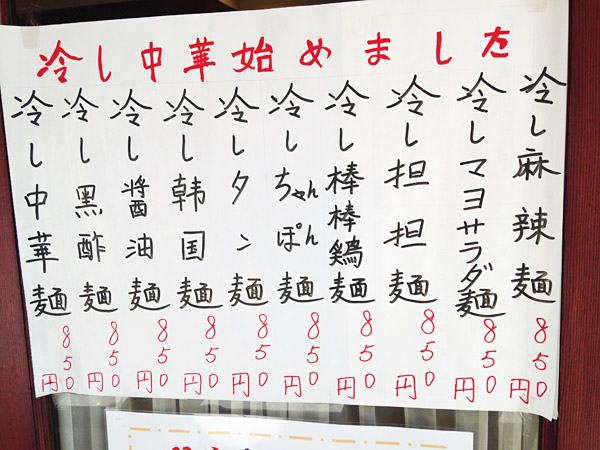 冷し中華始めました
冷し麻辣麺 850円
冷しマヨサラダ麺 850円
冷し担担麺 850円
冷し棒棒鶏麺 850円
冷しちゃんぽん麺 850円
冷しタン麺 850円
冷し韩国麺 850円
冷し醤油麺 850円
冷し黒酢麺 850円
冷し中華麺 850円